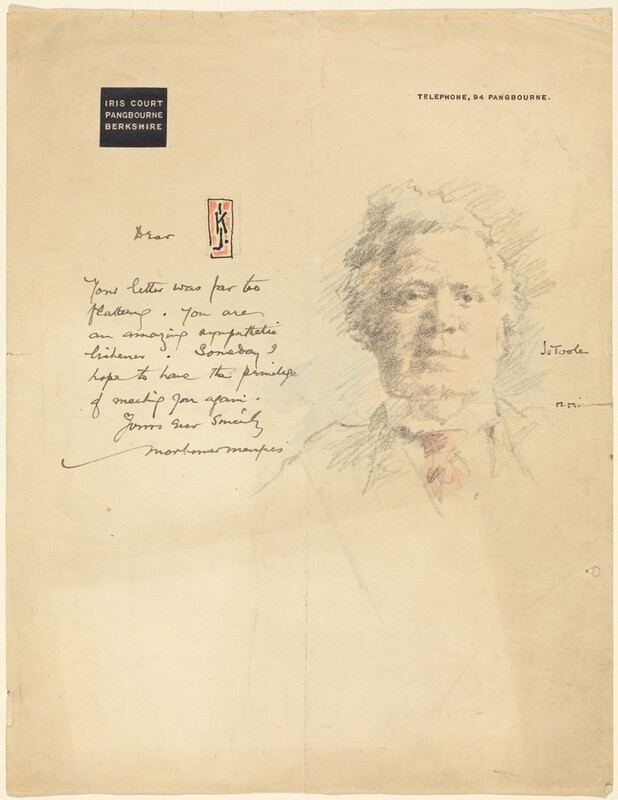 IRIS COURT
PANGBOURNE
BERKSHIRE
TELEPHONE, 94 PANGBOURNE.
Dear
Your letter was far too
flattering. You are
an amazing sympathetic
listener. Someday I
hope to have the privilege
of meeting you again.
Yours ever Sincerely
Mortimer Menpes
J. Toole
M.M.